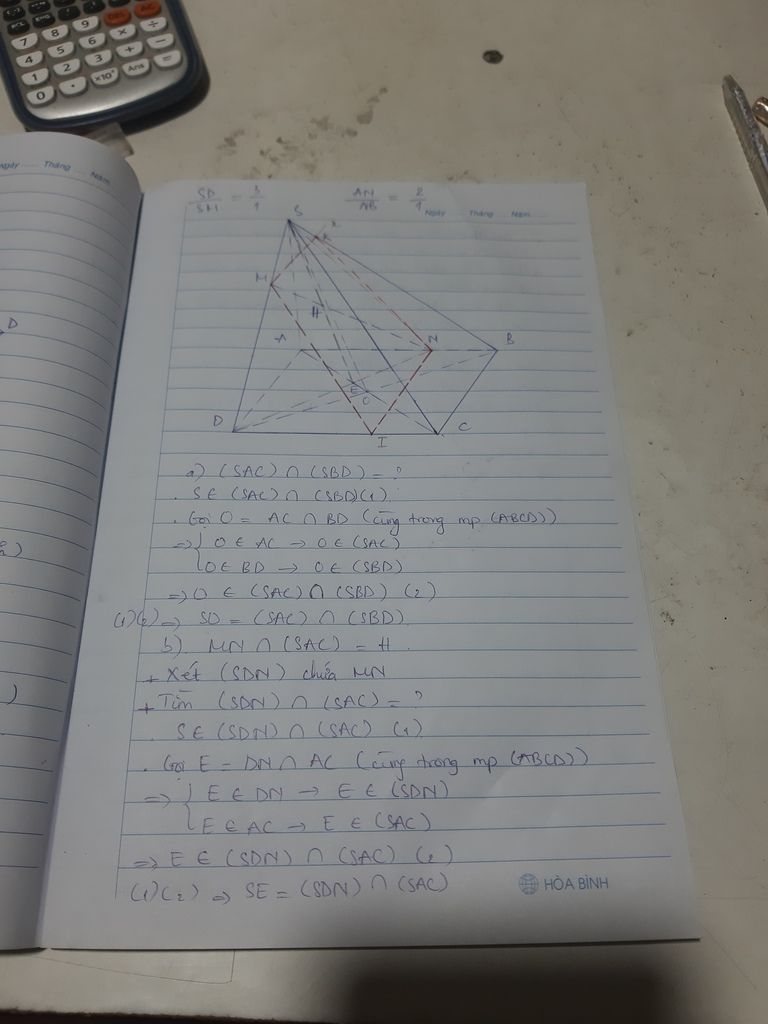 DEL AC
7 8 9
4 5 6 × ÷
1 2 3 + −
0 . ×10ˣ Ans =
Ngày ..... Tháng .... Năm
D
)
SD/SM = 3/1 AN/AB = 2/1
Ngày ..... Tháng ..... Năm .....
S
K
M
H
A
N
B
E
O
D
I
C
a) (SAC) ∩ (SBD) = ?
. S ∈ (SAC) ∩ (SBD) (1)
. Gọi O = AC ∩ BD (cùng trong mp (ABCD))
=> { O ∈ AC → O ∈ (SAC)
O ∈ BD → O ∈ (SBD)
=> O ∈ (SAC) ∩ (SBD) (2)
(1)(2) => SO = (SAC) ∩ (SBD)
b) MN ∩ (SAC) = H
+ Xét (SDN) chứa MN
+ Tìm (SDN) ∩ (SAC) = ?
. S ∈ (SDN) ∩ (SAC) (1)
. Gọi E = DN ∩ AC (cùng trong mp (ABCD))
=> { E ∈ DN → E ∈ (SDN)
E ∈ AC → E ∈ (SAC)
=> E ∈ (SDN) ∩ (SAC) (2)
(1)(2) => SE = (SDN) ∩ (SAC)
HÒA BÌNH